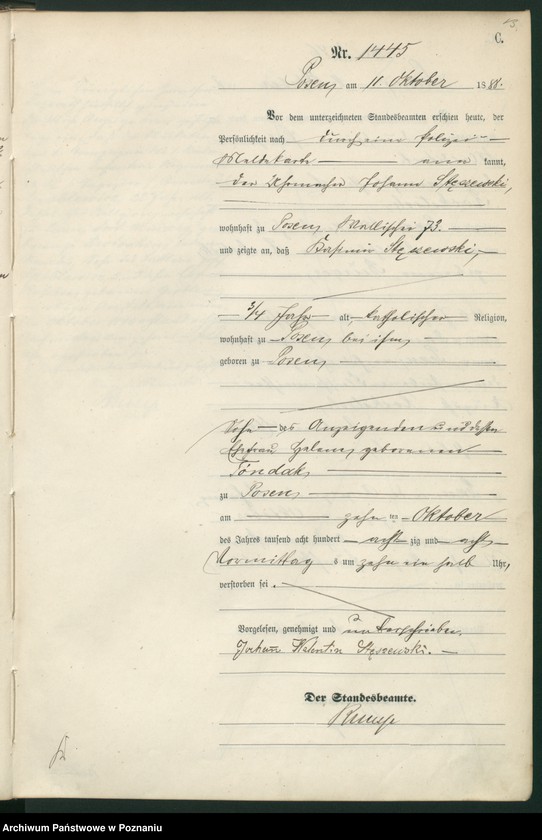 C.
Nr. 1445
Posen, am 11. Oktober 1888.
Vor dem unterzeichneten Standesbeamten erschien heute, der
Persönlichkeit nach durch eine Polizei-
Meldekarte anerkannt,
der Uhrmacher Johann Stęszewski,
wohnhaft zu Posen, Wallischei 73.
und zeigte an, daß Kasimir Stęszewski,
3/4 Jahr alt, katholischer Religion,
wohnhaft zu Posen, bei ihm,
geboren zu Posen,
Sohn des Anzeigenden und dessen
Ehefrau Helene, geborenen
zu Posen,
am zehnten Oktober
des Jahres tausend acht hundert achtzig und acht
Vormittags um zehn ein halb Uhr,
verstorben sei.
Vorgelesen, genehmigt und unterschrieben.
Johann Valentin Stęszewski.
Der Standesbeamte.
Archiwum Państwowe w Poznaniu